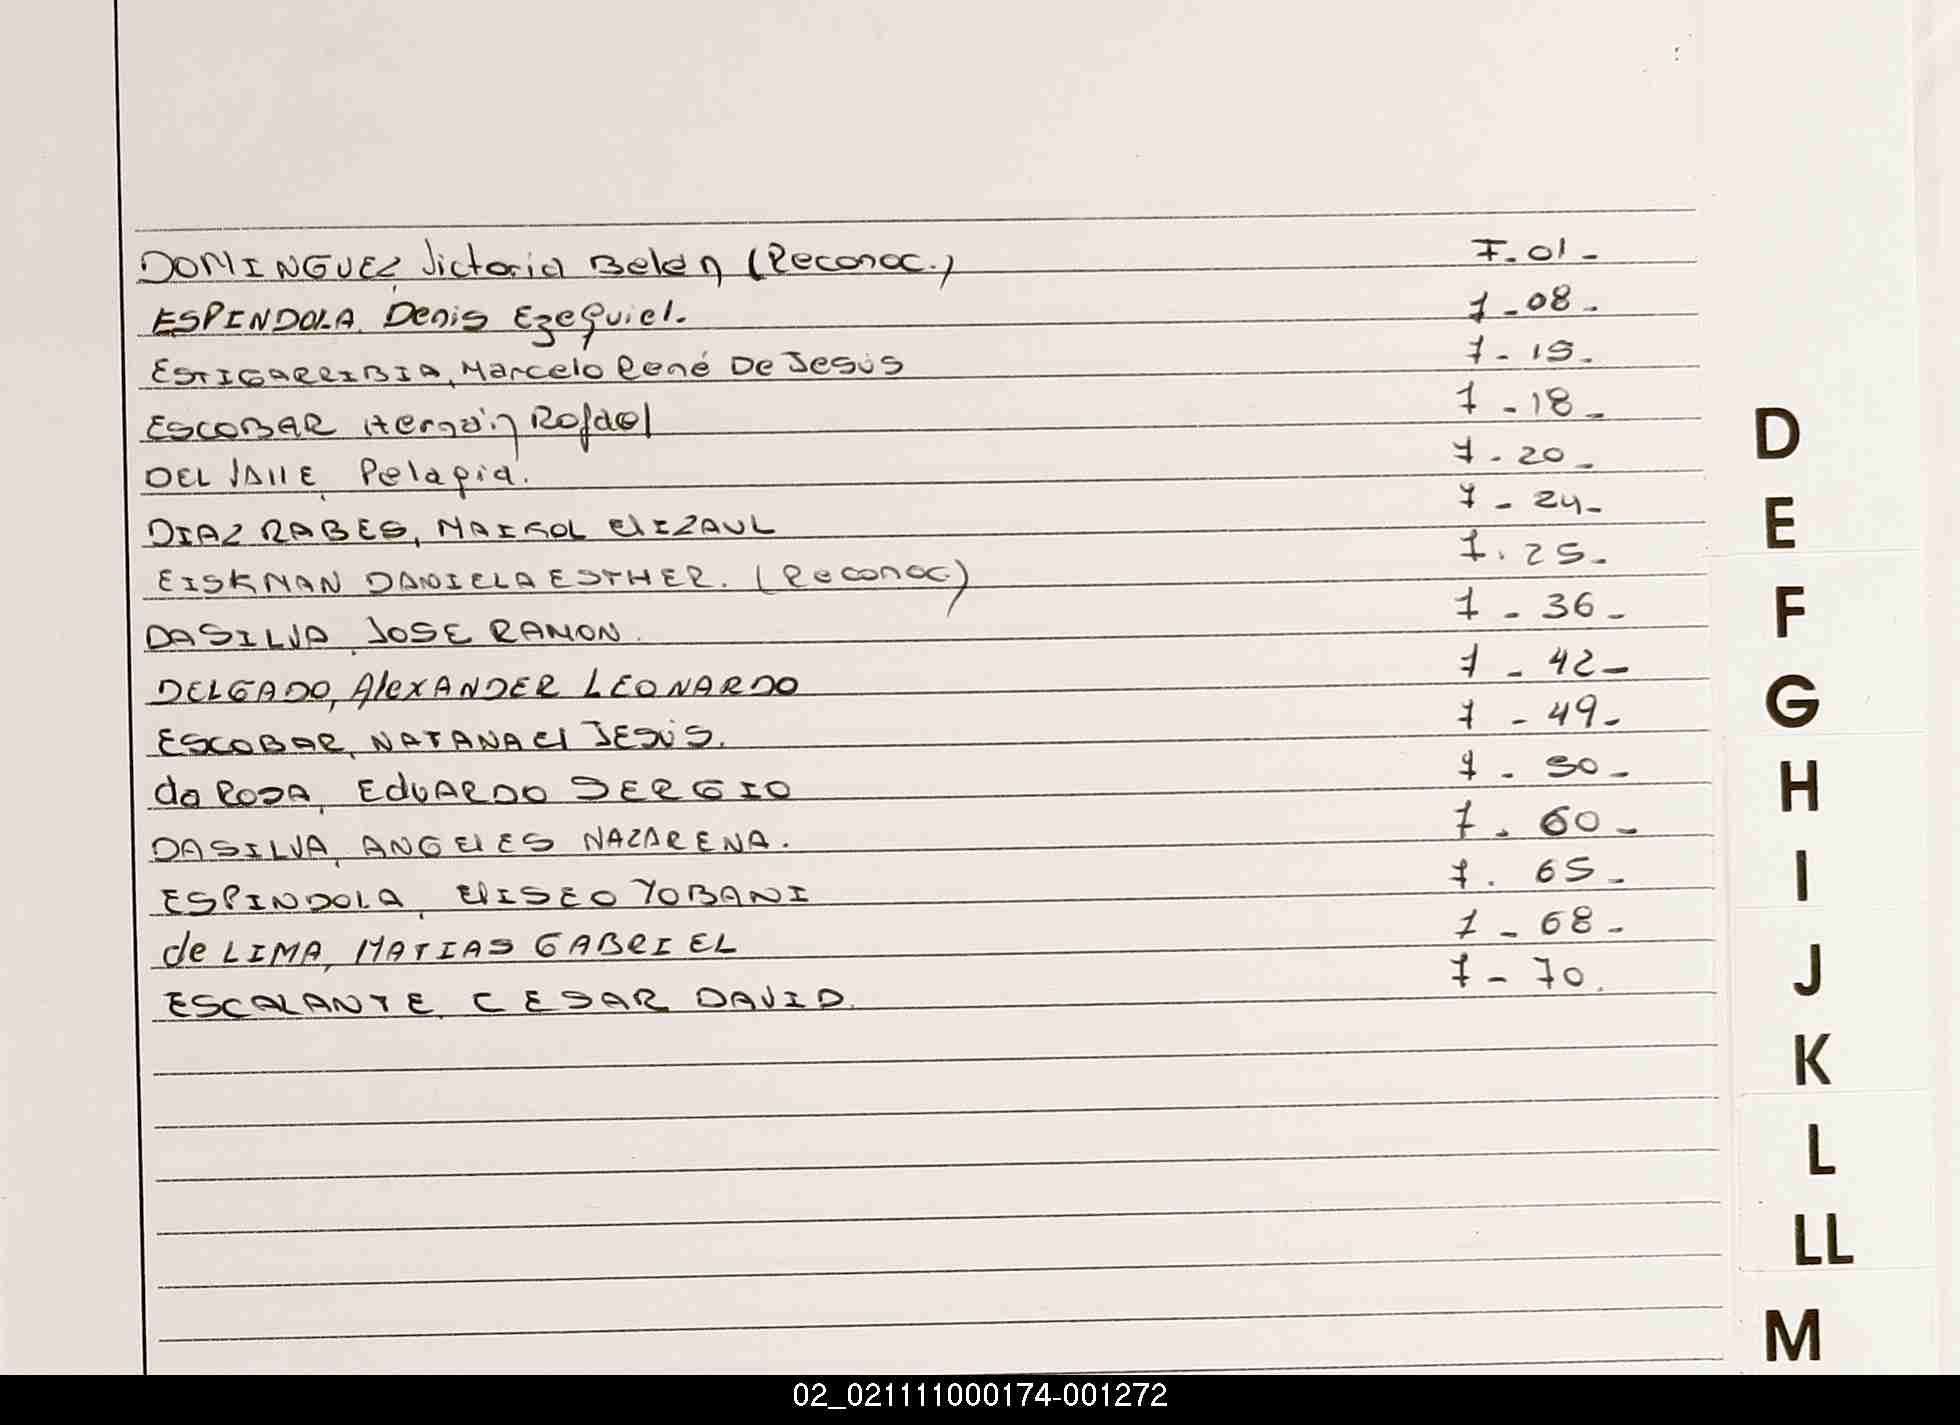 DOMINGUEZ, Victoria Belén (Reconoc.) F.01-
ESPINDOLA, Denis Ezequiel. F-08-
ESTIGARRIBIA, Marcelo René De Jesús F-15-
ESCOBAR Hernán Rafael F-18-
DEL VALLE, Pelagia. F-20-
DIAZ RABES, MAISOL ElIZAUL F-24-
EISKMAN DANIELA ESTHER. (Reconoc.) F.25-
DA SILVA, JOSE RAMON. F-36-
DELGADO, AlEXANDER LEONARDO F-42-
ESCOBAR, NATANAEl JESÚS. F-49-
da ROSA, EdUARDO SERGIO F-50-
DASILVA, ANGElES NAZARENA. F.60-
ESPINDOLA, ElISEO YOBANI F.65-
de LIMA, MATIAS GABRIEL F-68-
ESCALANTE, CESAR DAVID. F-70.
D
E
F
G
H
I
J
K
L
LL
M
02_021111000174-001272